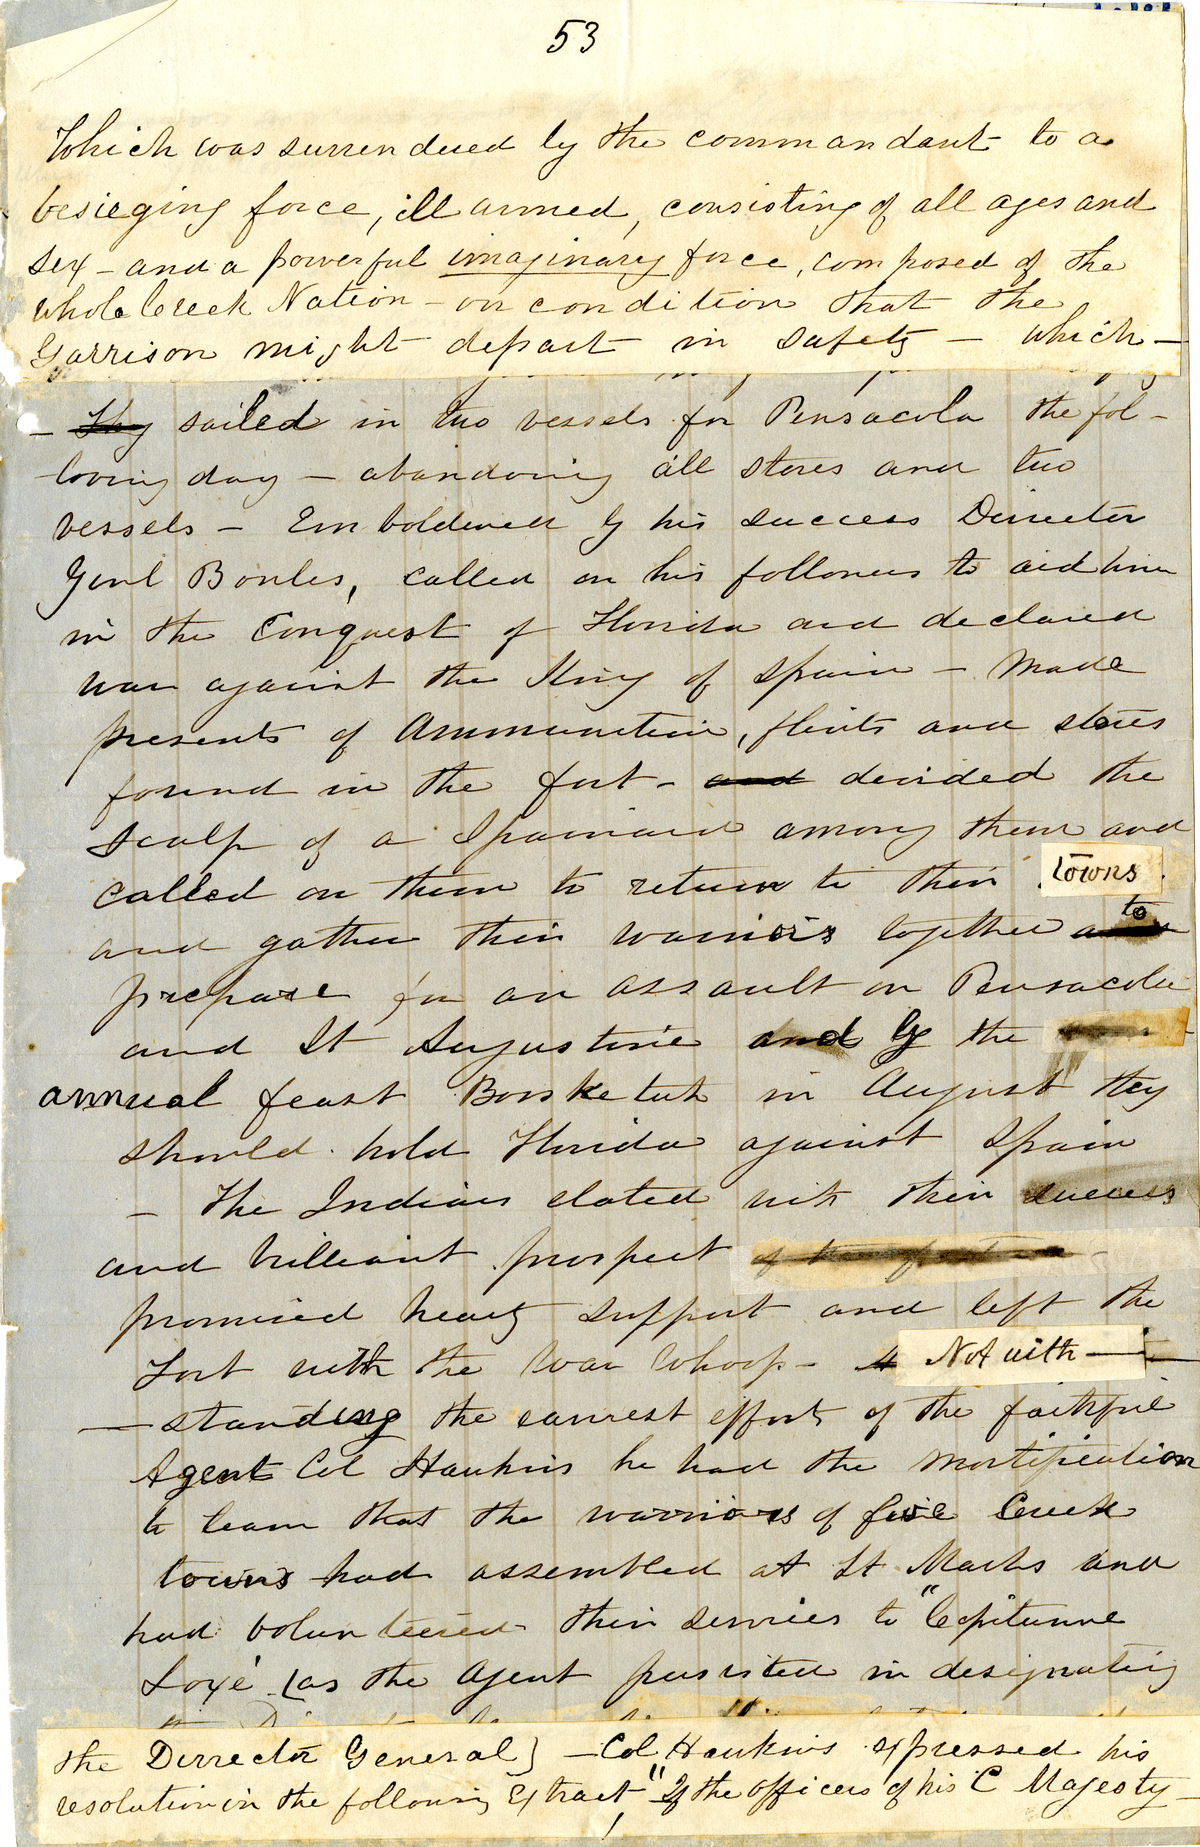 53
Which was surrendered by the commandant to a
besieging force, ill armed, consisting of all ages and
sex - and a powerful imaginary force, composed of the
whole Creek Nation - on condition that the
Garrison might depart in safety - which -
- They sailed in two vessels for Pensacola the fol-
-lowing day - abandoning all stores and two
vessels - Emboldened by his success Director
Genl Bowles, called on his followers to aid him
in the Conquest of Florida and declared
war against the King of Spain - Made
presents of Ammunition, flints and stores
found in the fort - and devided the
scalp of a Spainard among them and
called on them to return to their towns
and gather their warriors together to
prepare for an assault on Pensacola
and St Augustine and by the
annual feast Boosketuh in August they
should hold Florida against Spain
- The Indians elated with their success
and brilliant prospect
promised hearty support and left the
Fort with the War Whoop - Notwith-
-standing the earnest effort of the faithful
Agent Col Hawkins he had the mortification
to learn that the warriors of five Creek
towns had assembled at St Marks and
had volunteered their services to "Capitanne
Loxé (as the Agent persisted in designating
the Dirrector General) - Col Hawkins expressed his
resolution in the following Extract, "If the officers of his C Majesty -